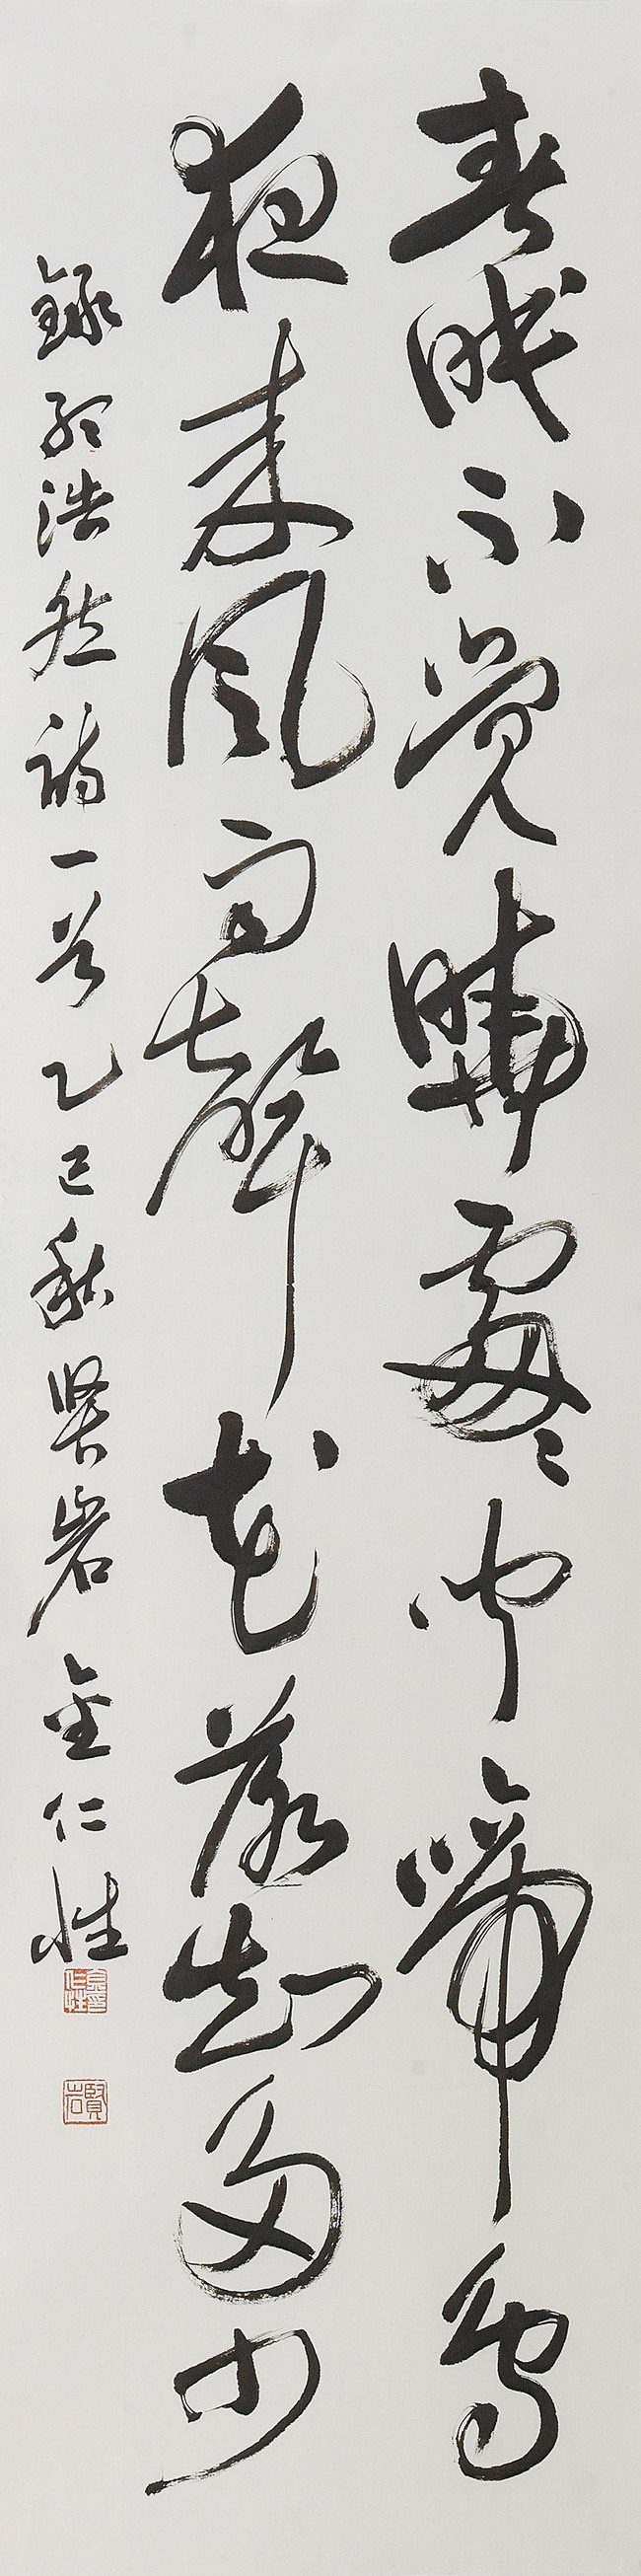 春眠不覺曉處〻聞啼鳥
夜來風雨聲花落知多少
錄孟浩然詩一首乙巳秋賢岩金仁性
賢岩